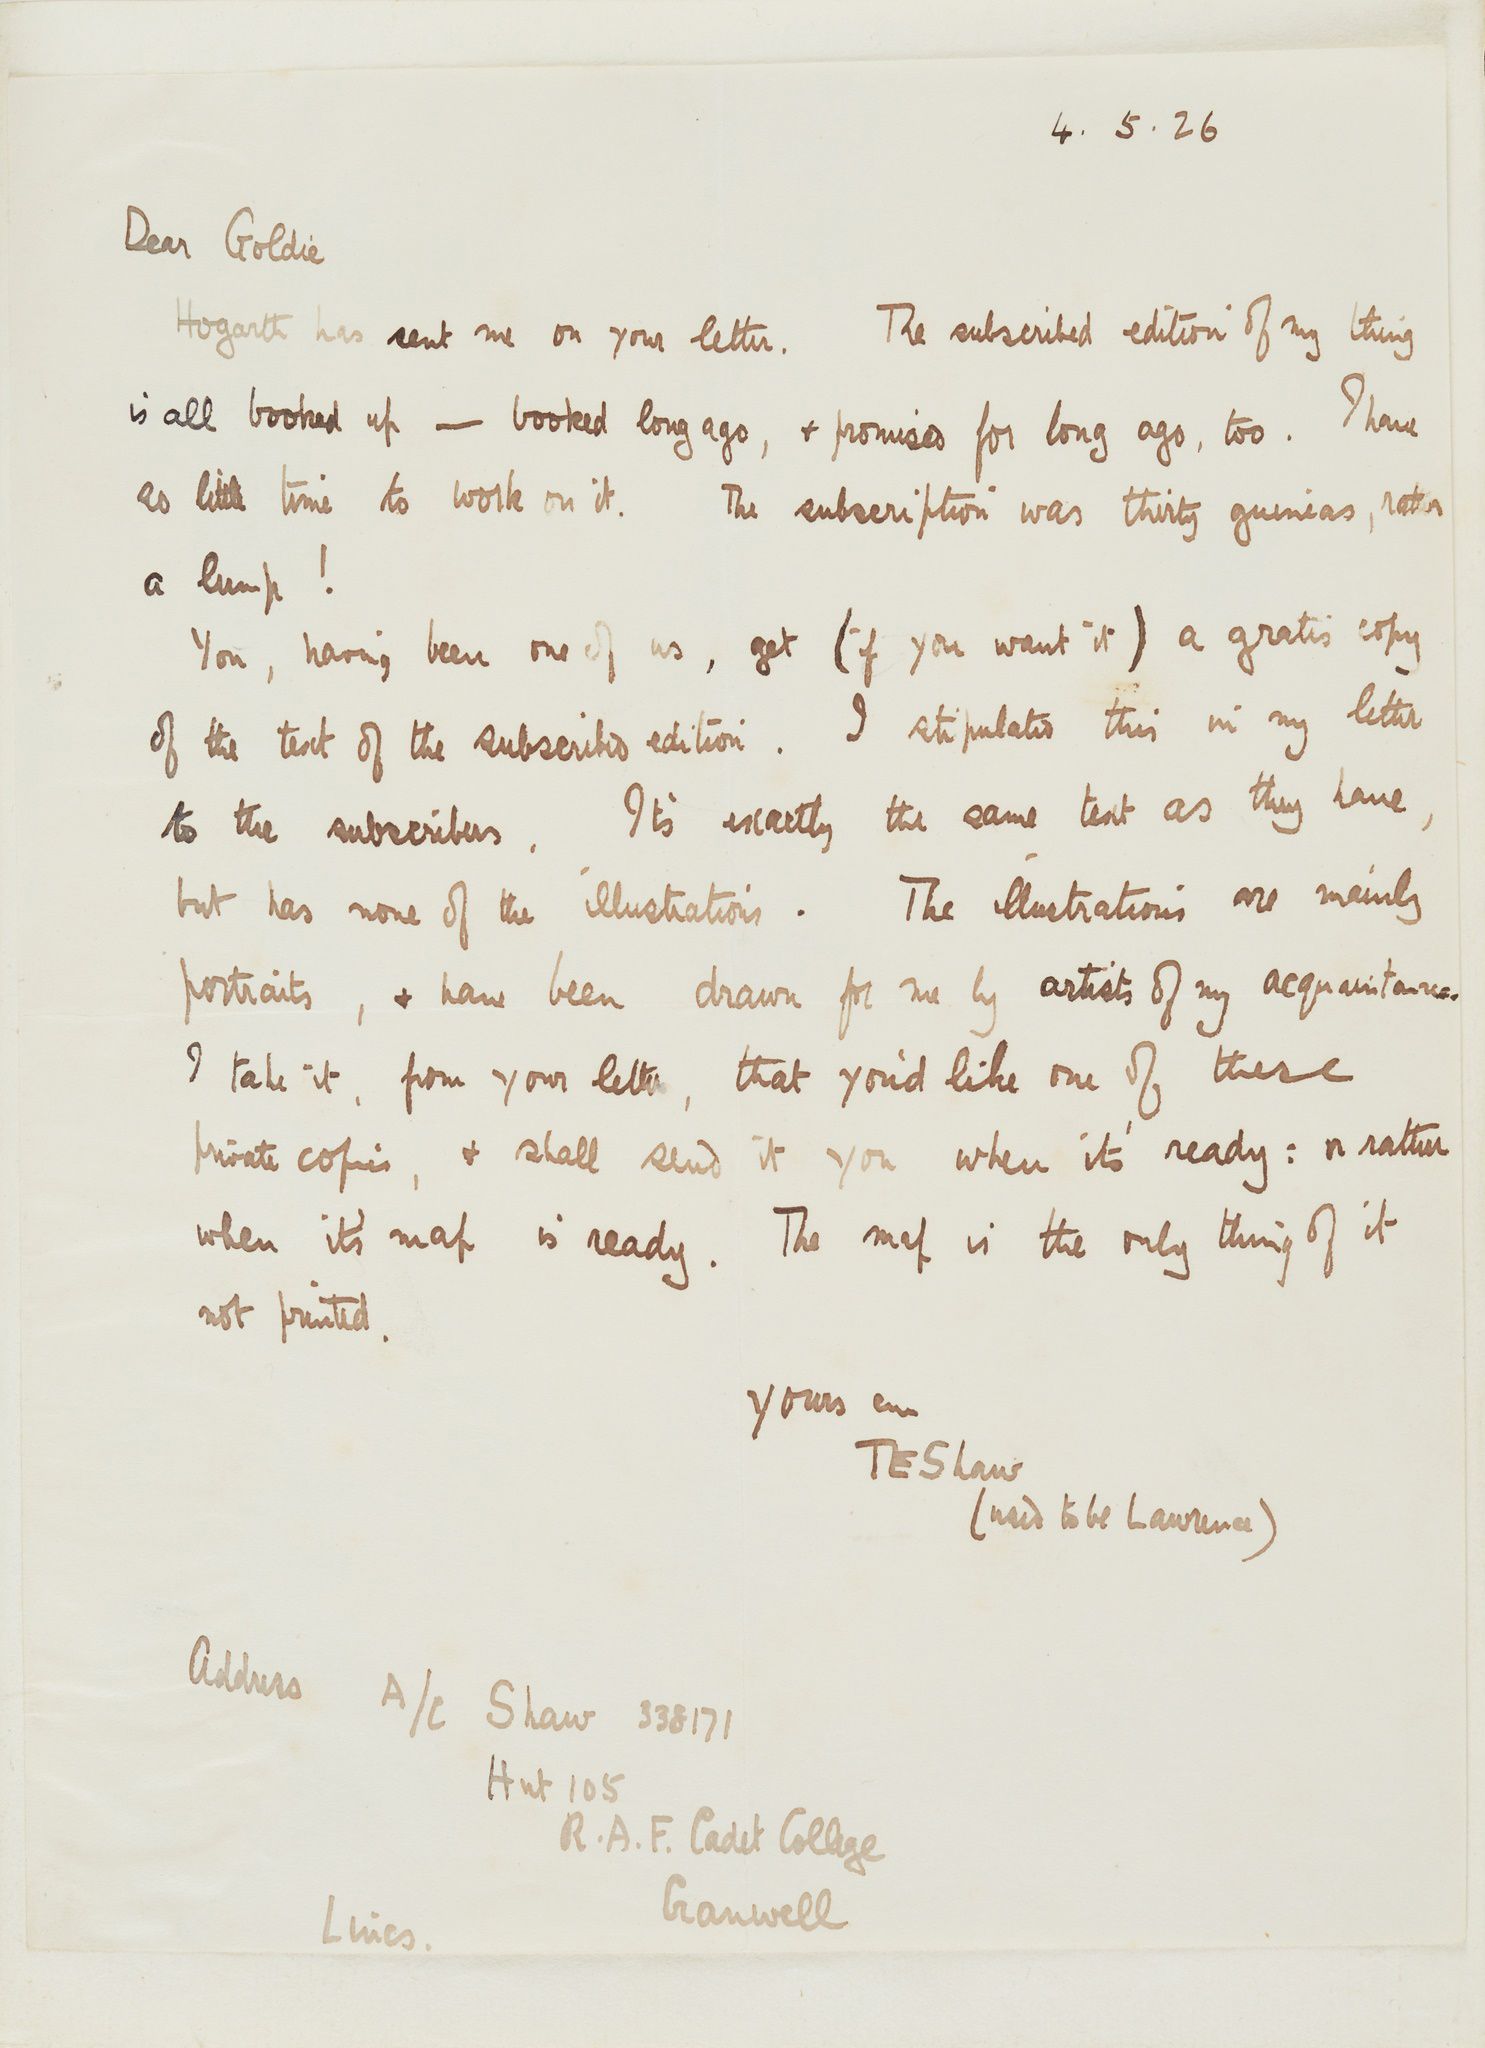 4. 5. 26
Dear Goldie
Hogarth has sent me on your letter. The subscribed edition of my thing
is all booked up — booked long ago, + promised for long ago, too. I have
so little time to work on it. The subscription was thirty guineas, rather
a lump!
You, having been one of us, get (if you want it) a gratis copy
of the text of the subscribed edition. I stipulated this in my letter
to the subscribers. It's exactly the same text as they have,
but has none of the illustrations. The illustrations are mainly
portraits, + have been drawn for me by artists of my acquaintance.
I take it, from your letter, that you'd like one of these
private copies, + shall send it you when it's ready: or rather
when it's map is ready. The map is the only thing of it
not printed.
Yours
TEShaw
(used to be Lawrence)
Address A/C Shaw 338171
Hut 105
R.A.F. Cadet College
Cranwell
Lincs.